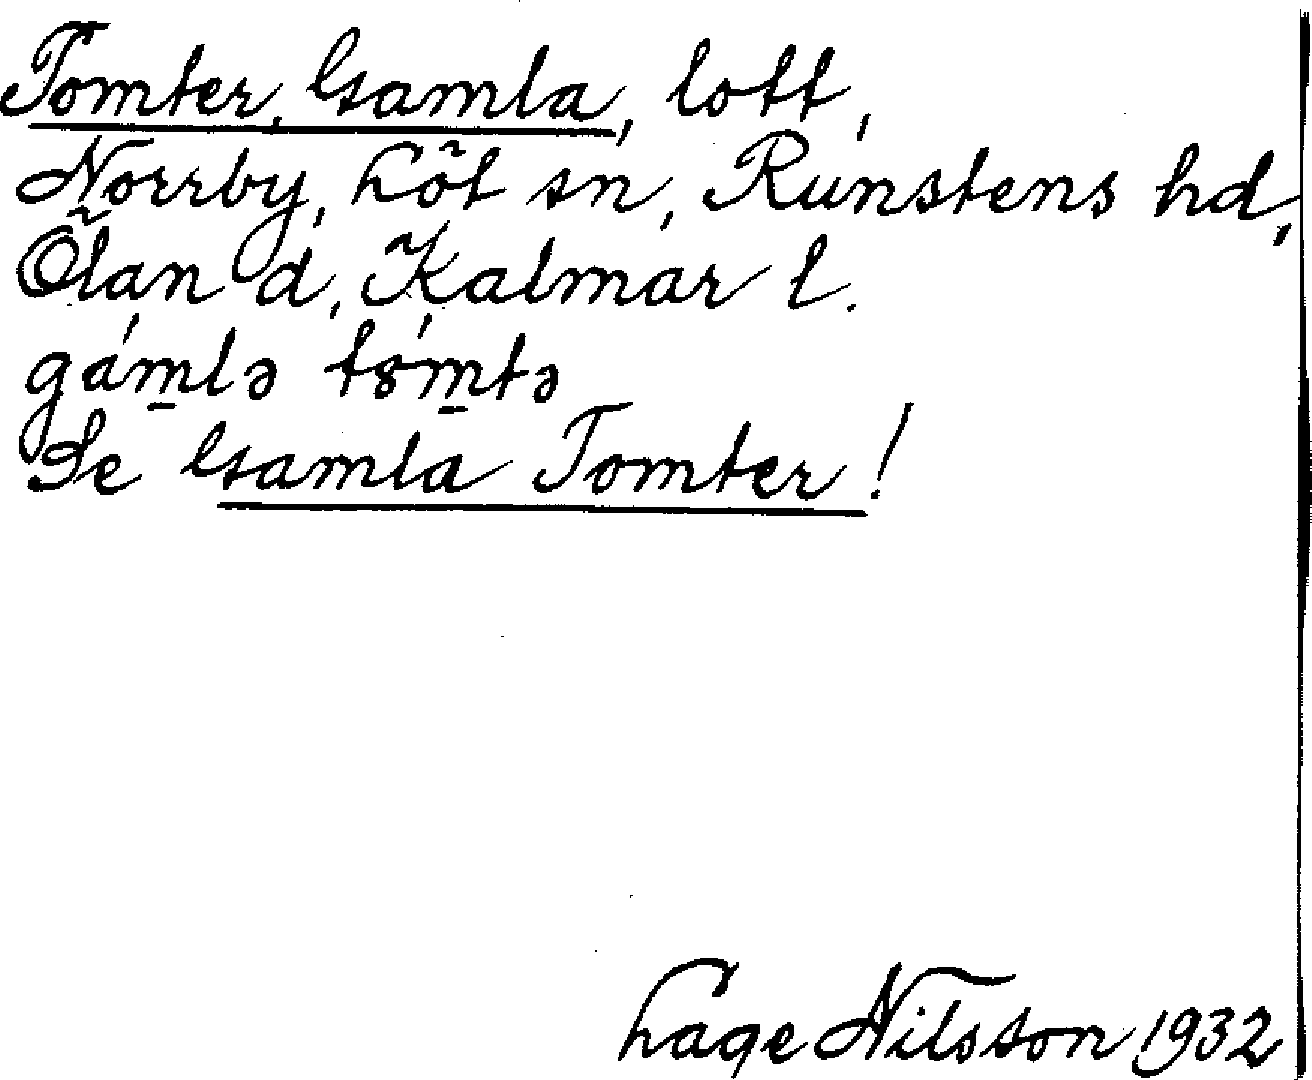 Tomter, Gamla, lott,
Norrby, Löt sn, Runstens hd,
Öland, Kalmar l.
gámlə tómtə
Se Gamla Tomter!
Lage Nilsson 1932